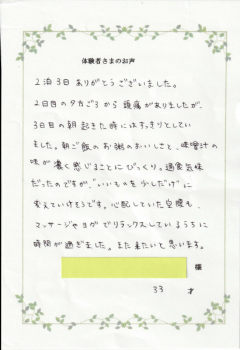 体験者さまのお声
2泊3日ありがとうございました。
2日目の夕方ごろから頭痛がありましたが、
3日目の朝起きた時にはすっきりとしてい
ました。朝ご飯のお粥のおいしさと、味噌汁の
味が濃く感じることにびっくり。過食気味
だったのですが、"いいものを少しだけ"に
変えていけそうです。心配していた空腹も、
マッサージやヨガでリラックスしているうちに
時間が過ぎました。また来たいと思います。
様
33 才